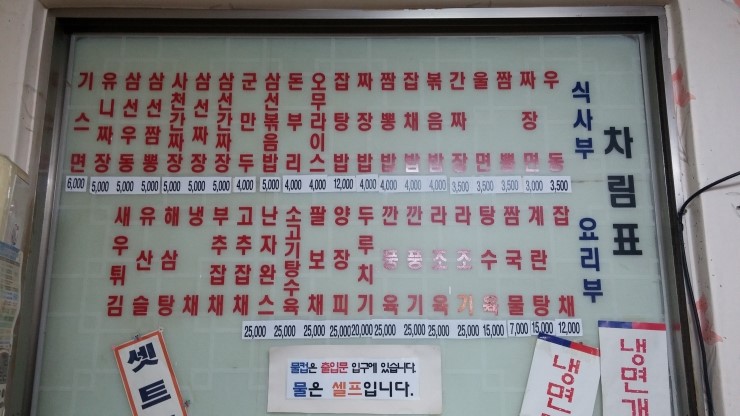 차림표
식사부
우동 3,500
짜장면 3,000
짬뽕 3,500
울면 3,500
간짜장 3,500
볶음밥 4,000
잡채밥 4,000
짬뽕밥 4,000
짜장밥 4,000
잡탕밥 12,000
오무라이스 4,000
돈부리 4,000
삼선볶음밥 5,000
군만두 4,000
삼선간짜장 5,000
삼선짜장 5,000
사천간짜장 5,000
삼선짬뽕 5,000
삼선우동 5,000
유니짜장 5,000
기스면 6,000
요리부
잡채 12,000
계란탕 15,000
짬국물 7,000
탕수육 15,000
라조기 25,000
라조육 25,000
깐풍기 25,000
깐풍육 25,000
두루치기 20,000
양장피 25,000
팔보채 25,000
소고기탕수육 25,000
난자완스 25,000
고추잡채
부추잡채
냉채
해삼탕
유산슬
새우튀김
물컵은 출입문 입구에 있습니다.
물은 셀프입니다.
셋트
냉면
냉면개